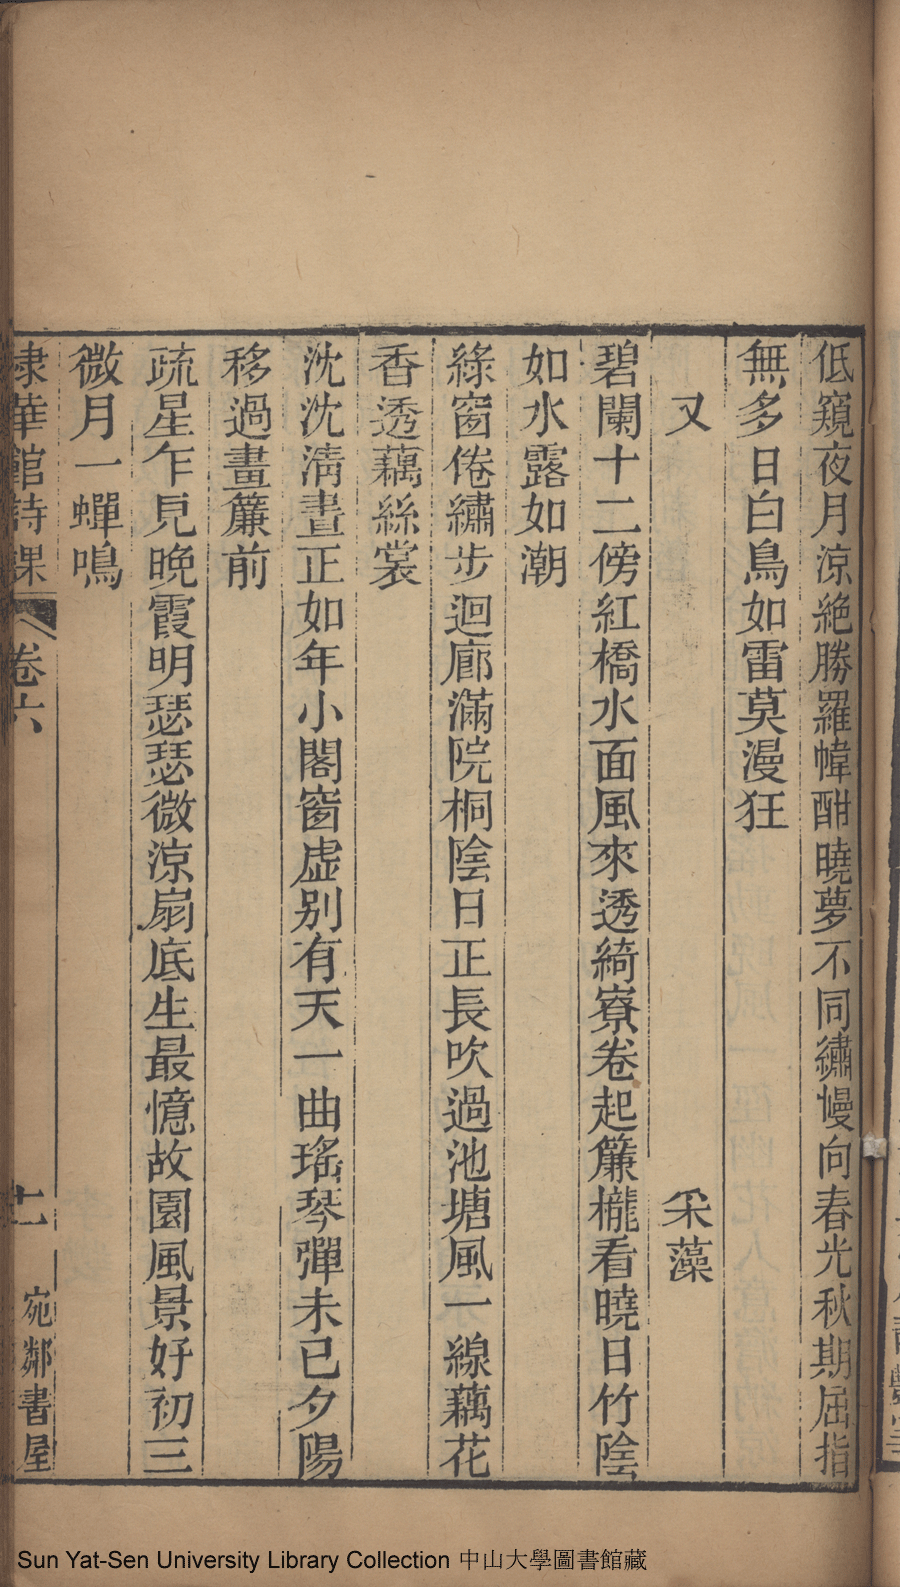 低窺夜月涼絶勝羅幃酣曉夢不同繡幔向春光秋期屈指
無多日白鳥如雷莫漫狂
又 采藻
碧闌十二傍紅橋水面風來透綺寮卷起簾櫳看曉日竹陰
如水露如潮
綠窗倦繡步迴廊滿院桐陰日正長吹過池塘風一線藕花
香透藕絲裳
沈沈淸晝正如年小閣窗虛别有天一曲瑤琴彈未已夕陽
移過畫簾前
疏星乍見晚霞明瑟瑟微涼扇底生最憶故園風景好初三
微月一蟬鳴
棣華館詩課 卷六 十一 宛鄰書屋
Sun Yat-Sen University Library Collection 中山大學圖書館藏